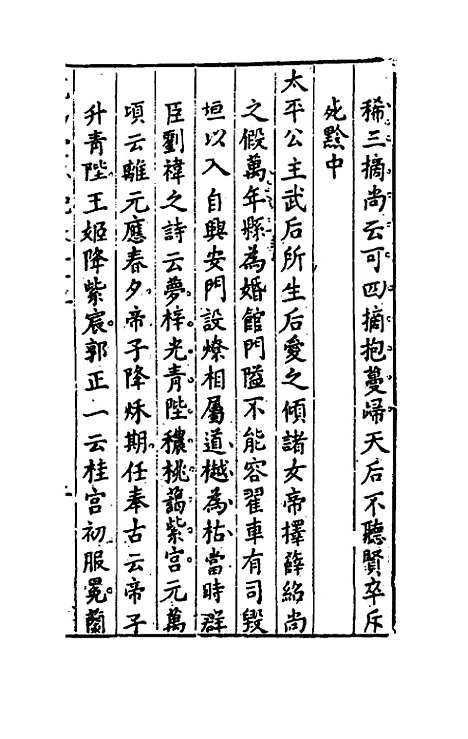 稀三摘尚云可四摘抱蔓歸天后不聽賢卒斥
死黔中
太平公主武后所生后愛之傾諸女帝擇薛紹尚
之假萬年縣為婚館門隘不能容翟車有司毀
垣以入自興安門設燎相屬道樾為枯當時群
臣劉禕之詩云夢梓光青陛穠桃藹紫宮元萬
頃云離元應春夕帝子降秌期任奉古云帝子
升青陛王姬降紫宸郭正一云桂宮初服冕蘭